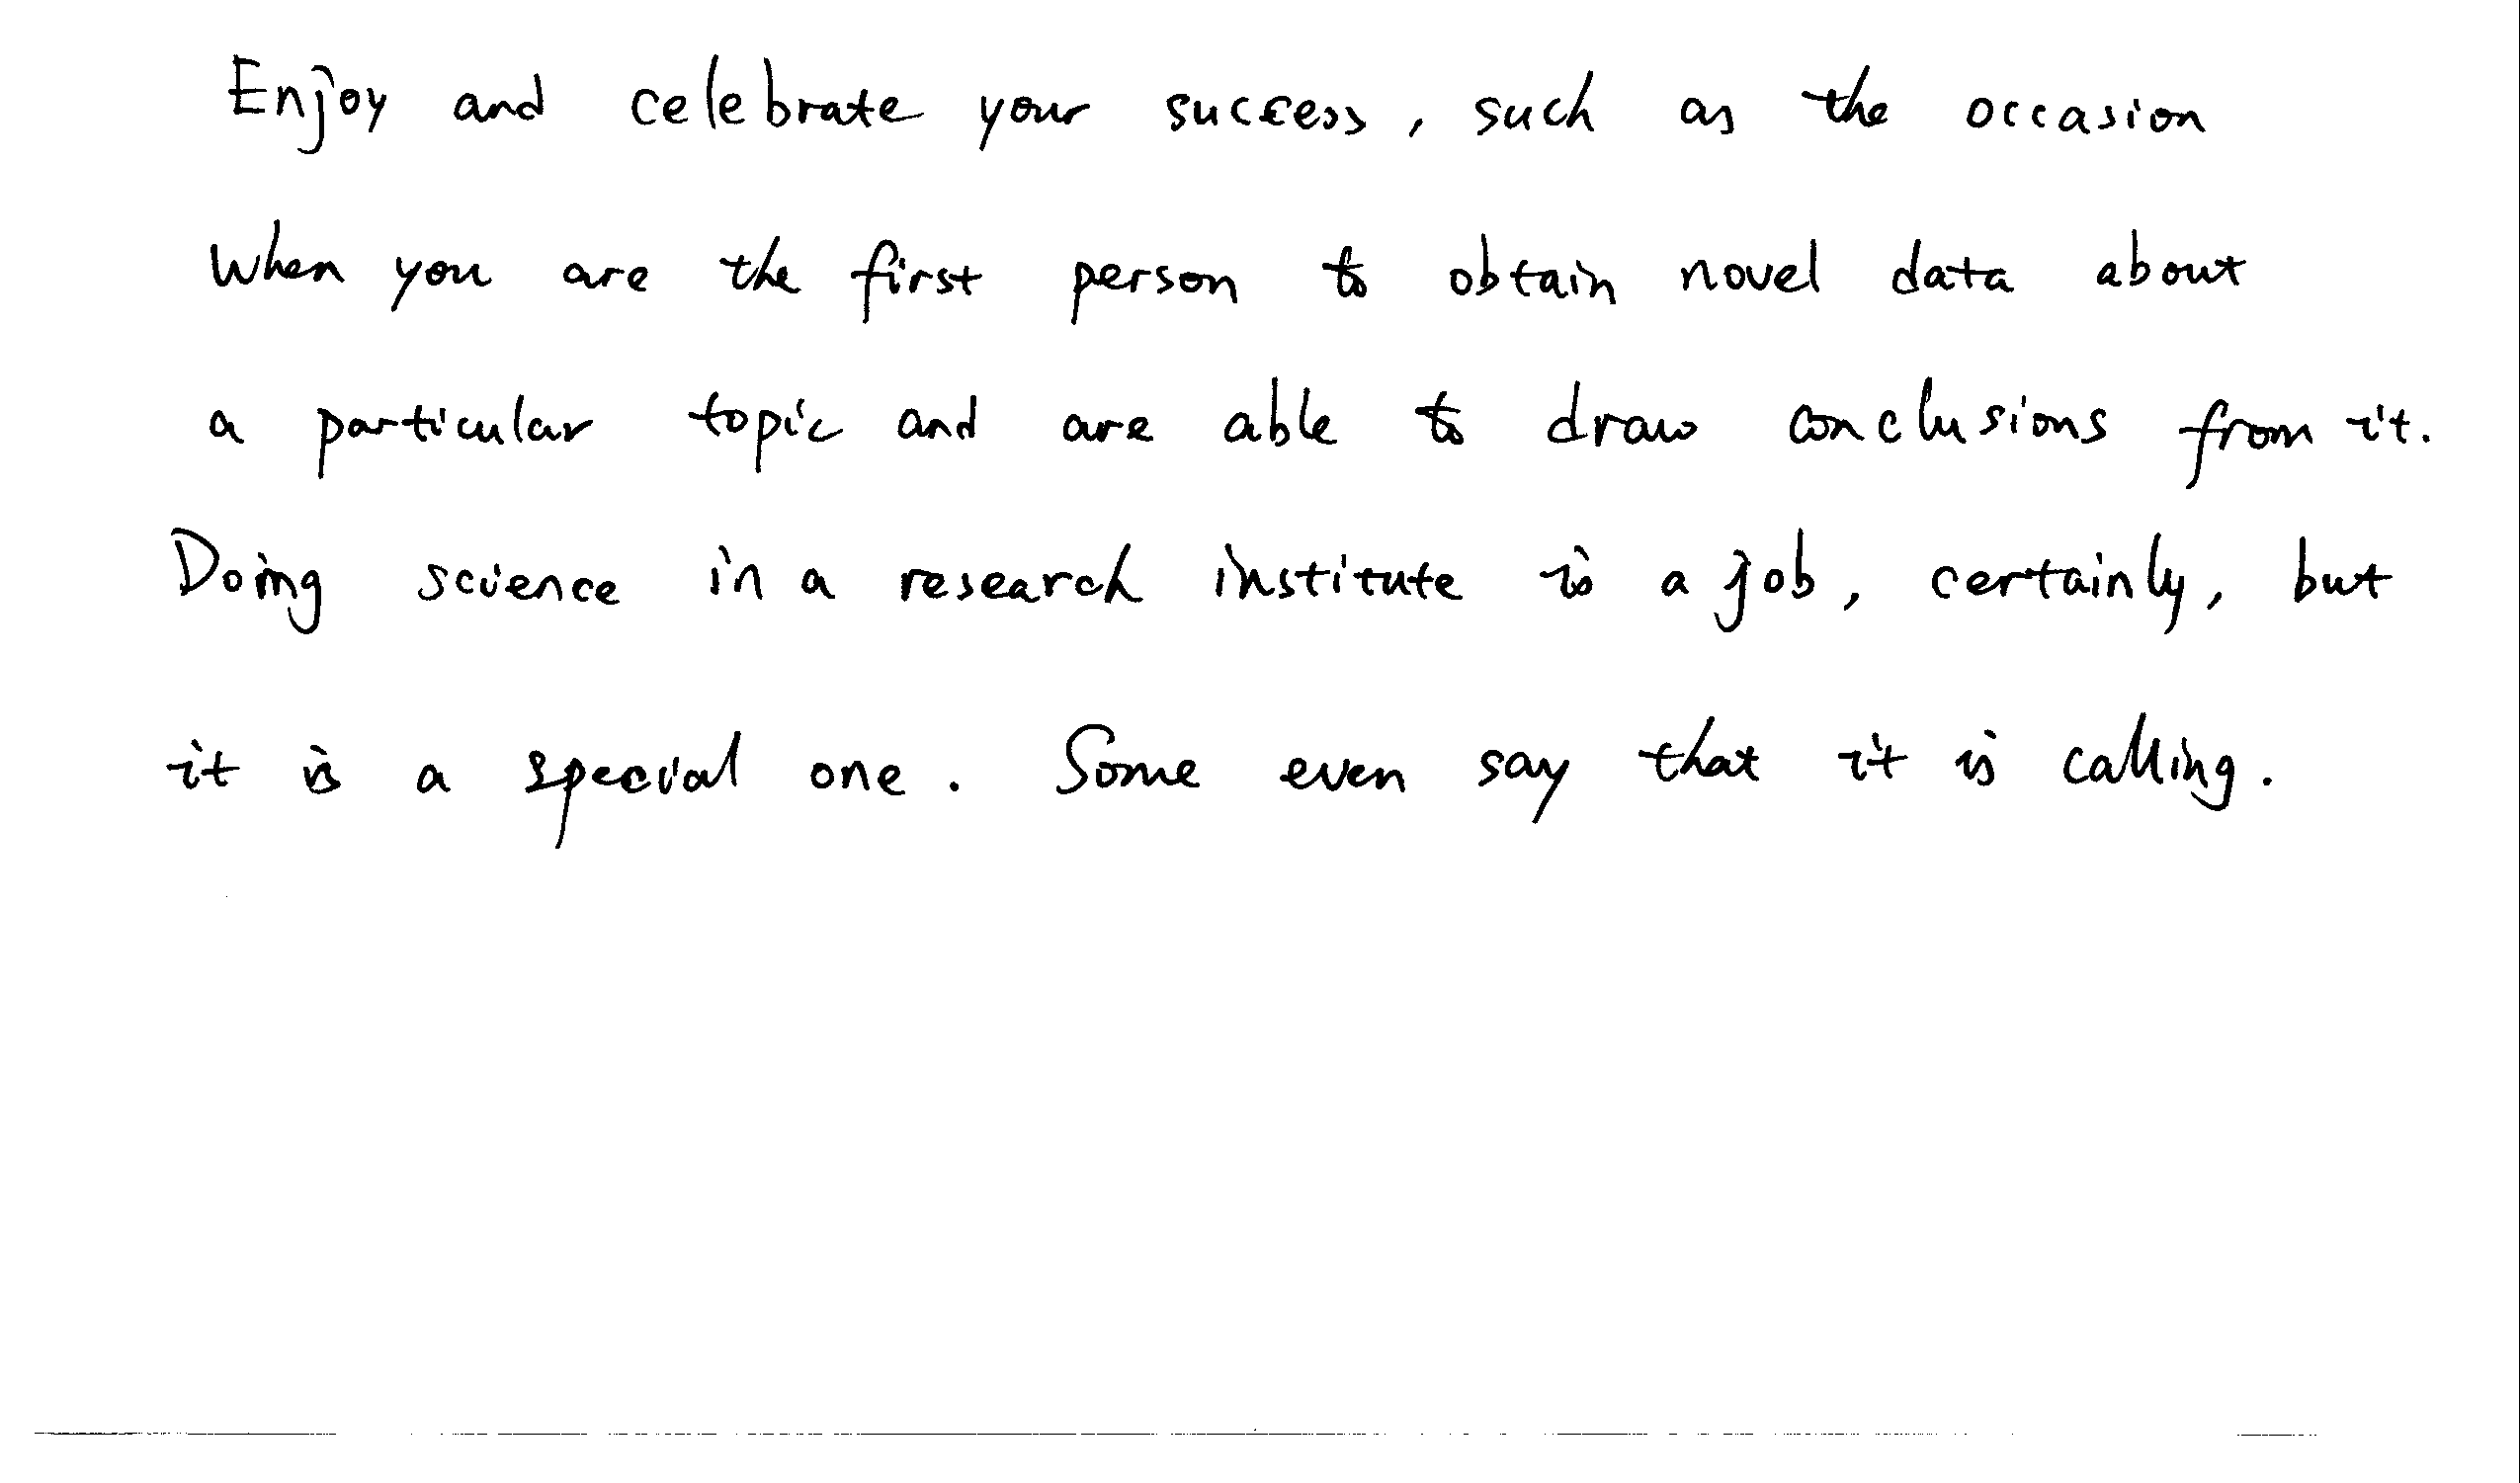 Enjoy and celebrate your success, such as the occasion
when you are the first person to obtain novel data about
a particular topic and are able to draw conclusions from it.
Doing science in a research institute is a job, certainly, but
it is a special one. Some even say that it is calling.